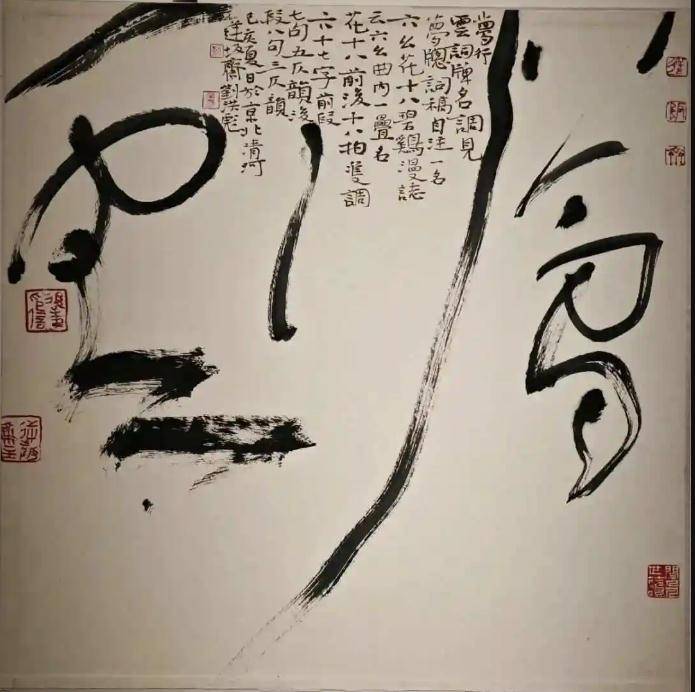 夢行雲
夢行
雲詞牌名調見
夢牕詞稿自注一名
六幺花十八碧鷄漫誌
云六幺曲内一疊名
花十八前後十八拍雙調
六十七字前段
七句五仄韻後
段八句三仄韻
己亥夏日於京北清河
逆坂齋劉洪彪